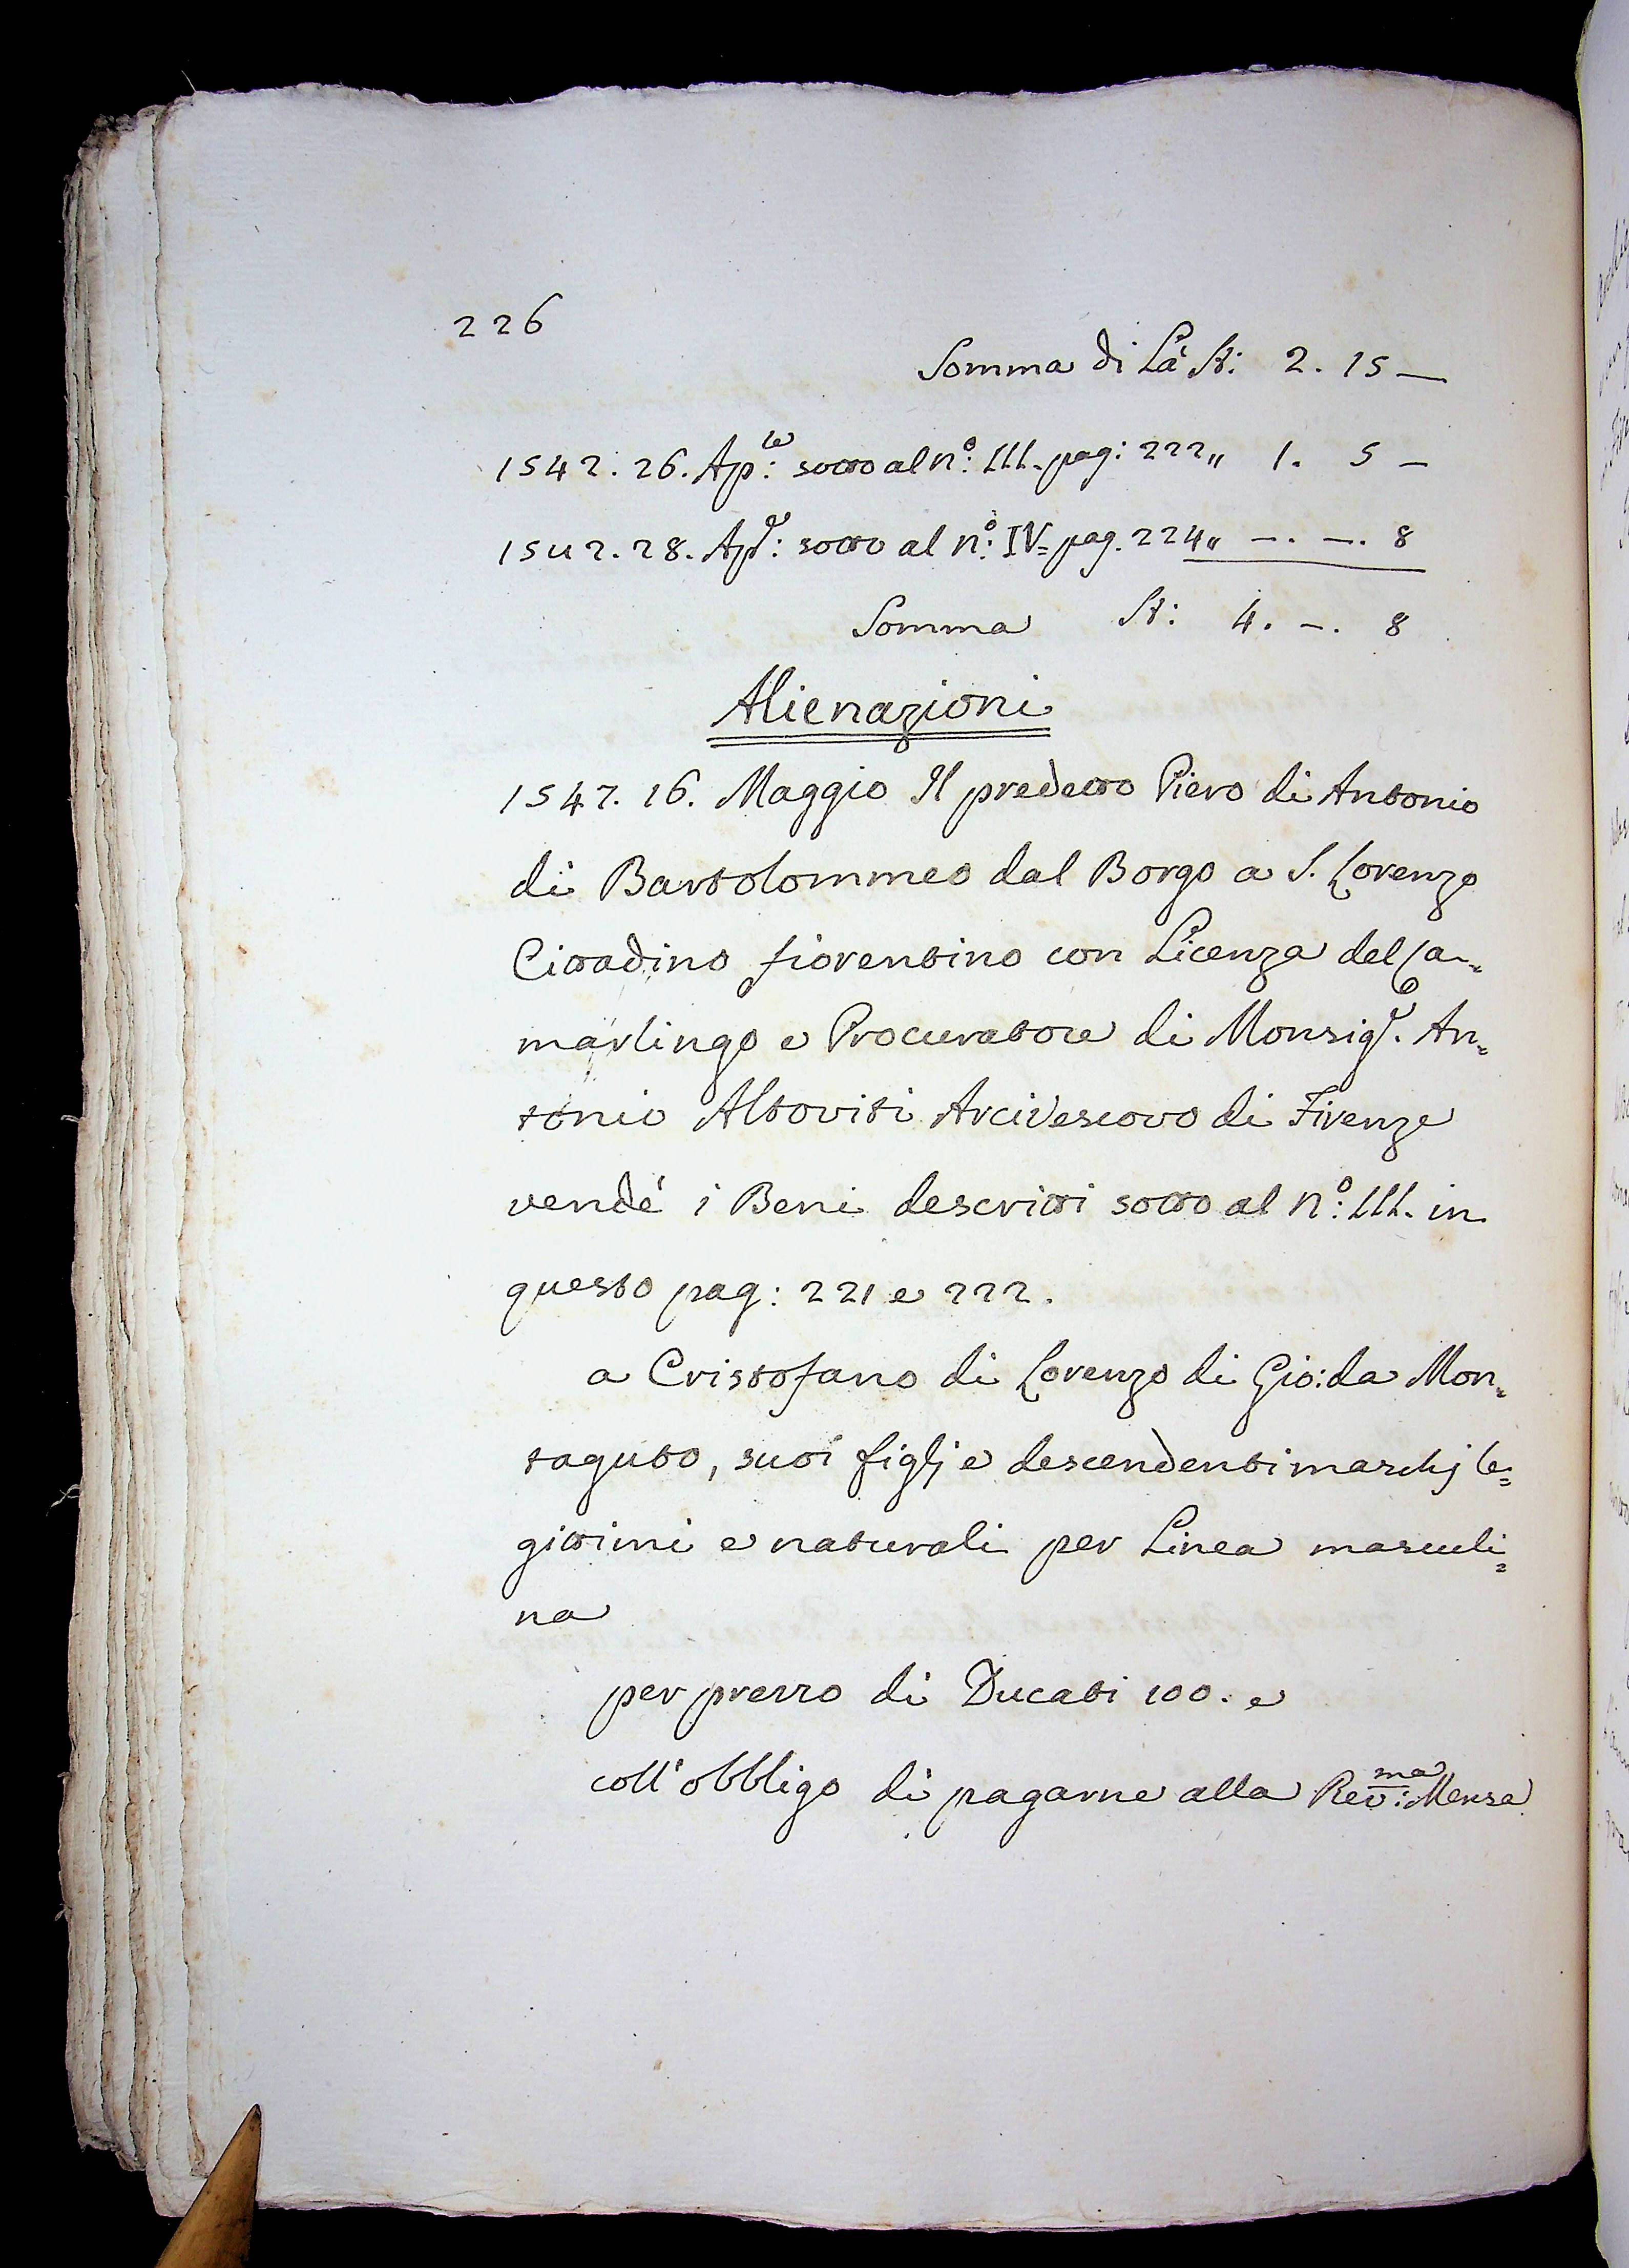 226
Somma di Là St: 2. 15 —
1542. 26. Ap:le sotto al n.o: III. pag: 222 „ 1. 5 —
1542. 28. Ap:e: sotto al n.o: IV= pag. 224 „ —. —. 8
Somma St: 4. —. 8
Alienazioni
1547. 16. Maggio Il predetto Piero di Antonio
di Bartolommeo dal Borgo a S. Lorenzo
Cittadino fiorentino con Licenza del Ca=
marlingo e Procuratore di Monsigr. An=
tonio Altoviti Arcivescovo di Firenze
vendé i Beni descritti sotto al n.o: III. in
questo pag: 221 e 222.
a Cristofano di Lorenzo di Gio: da Mon=
taguto, suoi figlj e descendenti maschj le=
gittimi e naturali per Linea masculi=
na
per prezzo di Ducati 100. e
coll'obbligo di pagarne alla Rev:ma Mensa